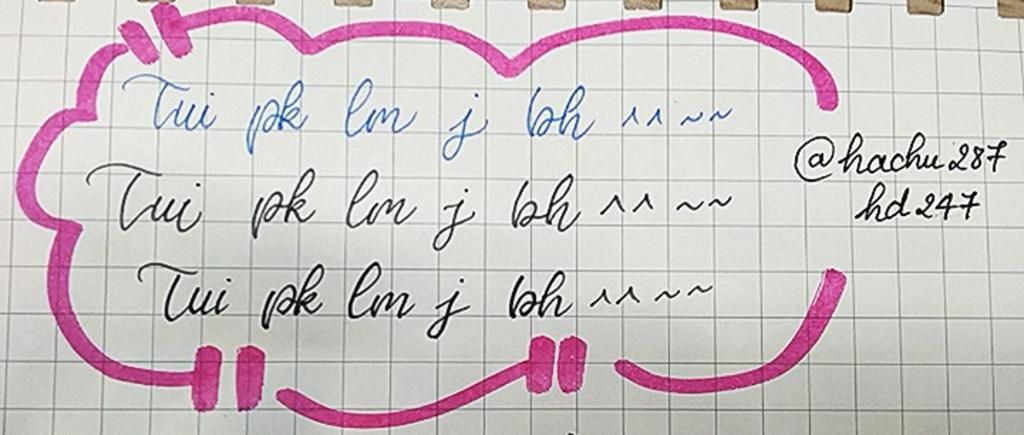 Tui pk lm j bh ^^ ~~
@hachu287
hd247
Tui pk lm j bh ^^ ~~
Tui pk lm j bh ^^ ~~